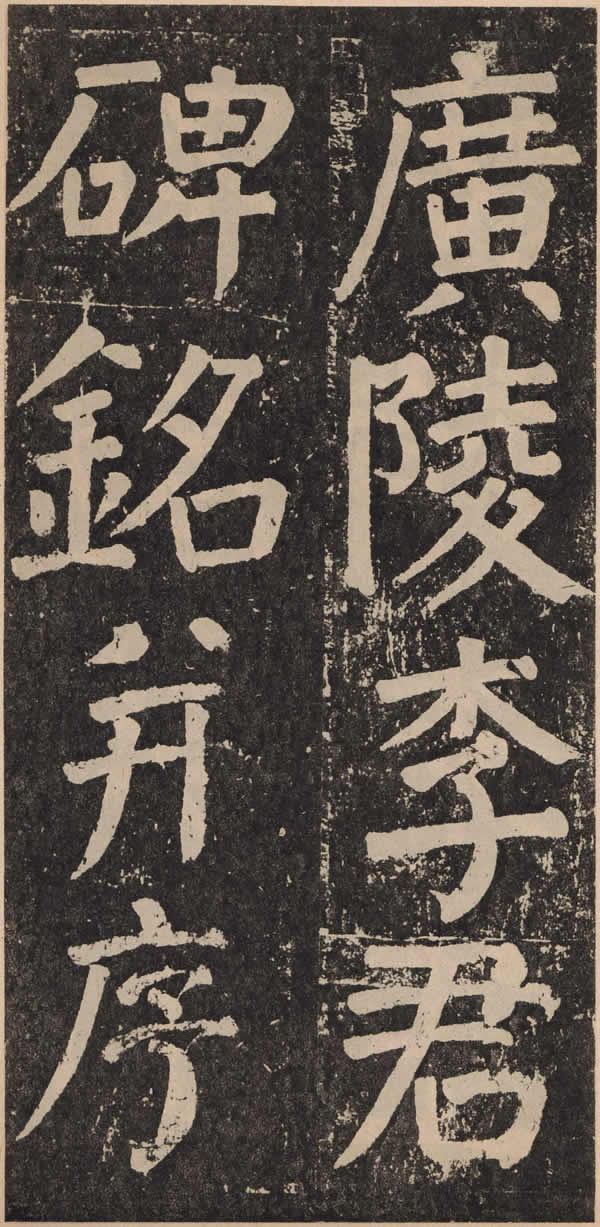 廣陵李君
碑銘并序